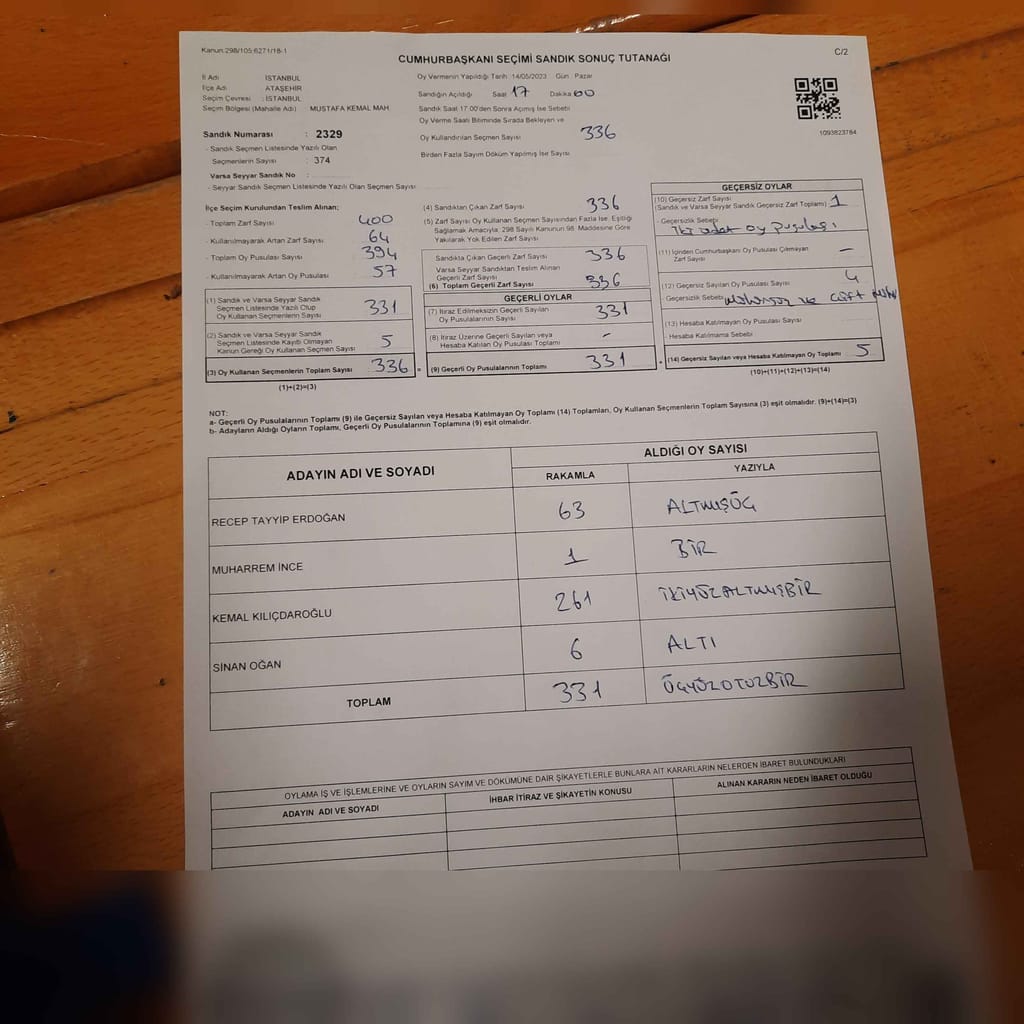 Kanun:298/105 6271/18-1
C/2
CUMHURBAŞKANI SEÇİMİ SANDIK SONUÇ TUTANAĞI
İl Adı İSTANBUL
İlçe Adı ATAŞEHİR
Seçim Çevresi : İSTANBUL
Seçim Bölgesi (Mahalle Adı) MUSTAFA KEMAL MAH
Oy Vermenin Yapıldığı Tarih 14/05/2023 Gün : Pazar
Sandığın Açıldığı Saat 17 Dakika 00
Sandık Saat 17:00'den Sonra Açımış İse Sebebi
Oy Verme Saati Bitiminde Sırada Bekleyen ve
Oy Kullandırılan Seçmen Sayısı 336
Birden Fazla Sayım Döküm Yapılmış İse Sayısı
1093823784
Sandık Numarası : 2329
- Sandık Seçmen Listesinde Yazılı Olan
Seçmenlerin Sayısı : 374
Varsa Seyyar Sandık No :
- Seyyar Sandık Seçmen Listesinde Yazılı Olan Seçmen Sayısı
İlçe Seçim Kurulundan Teslim Alınan;
- Toplam Zarf Sayısı 400
- Kullanılmayarak Artan Zarf Sayısı 64
- Toplam Oy Pusulası Sayısı 394
- Kullanılmayarak Artan Oy Pusulası 57
(1) Sandık ve Varsa Seyyar Sandık
Seçmen Listesinde Yazılı Olup
Oy Kullanan Seçmenlerin Sayısı 331
(2) Sandık ve Varsa Seyyar Sandık
Seçmen Listesinde Kayıtlı Olmayan
Kanun Gereği Oy Kullanan Seçmen Sayısı 5
(3) Oy Kullanan Seçmenlerin Toplam Sayısı 336
(1)+(2)=(3)
(4) Sandıktan Çıkan Zarf Sayısı 336
(5) Zarf Sayısı Oy Kullanan Seçmen Sayısından Fazla İse, Eşitliği
Sağlamak Amacıyla, 298 Sayılı Kanunun 98. Maddesine Göre
Yakılarak Yok Edilen Zarf Sayısı
Sandıkta Çıkan Geçerli Zarf Sayısı 336
Varsa Seyyar Sandıktan Teslim Alınan
Geçerli Zarf Sayısı
(6) Toplam Geçerli Zarf Sayısı 336
GEÇERLİ OYLAR
(7) İtiraz Edilmeksizin Geçerli Sayılan
Oy Pusulalarının Sayısı 331
(8) İtiraz Üzerine Geçerli Sayılan veya
Hesaba Katılan Oy Pusulası Toplamı -
= (9) Geçerli Oy Pusulalarının Toplamı 331
GEÇERSİZ OYLAR
(10) Geçersiz Zarf Sayısı
(Sandık ve Varsa Seyyar Sandık Geçersiz Zarf Toplamı) 1
- Geçersizlik Sebebi
İki adet oy pusulası
(11) İçinden Cumhurbaşkanı Oy Pusulası Çıkmayan
Zarf Sayısı -
(12) Geçersiz Sayılan Oy Pusulası Sayısı 4
Geçersizlik Sebebi ve çift
(13) Hesaba Katılmayan Oy Pusulası Sayısı
- Hesaba Katılmama Sebebi
+ (14) Geçersiz Sayılan veya Hesaba Katılmayan Oy Toplamı 5
(10)+(11)+(12)+(13)=(14)
NOT:
a- Geçerli Oy Pusulalarının Toplamı (9) ile Geçersiz Sayılan veya Hesaba Katılmayan Oy Toplamı (14) Toplamları, Oy Kullanan Seçmenlerin Toplam Sayısına (3) eşit olmalıdır. (9)+(14)=(3)
b- Adayların Aldığı Oyların Toplamı, Geçerli Oy Pusulalarının Toplamına (9) eşit olmalıdır.
ADAYIN ADI VE SOYADI ALDIĞI OY SAYISI
RAKAMLA YAZIYLA
RECEP TAYYİP ERDOĞAN 63 ALTMIŞÜÇ
MUHARREM İNCE 1 BİR
KEMAL KILIÇDAROĞLU 261 İKİYÜZALTMIŞBİR
SİNAN OĞAN 6 ALTI
TOPLAM 331 ÜÇYÜZOTUZBİR
OYLAMA İŞ VE İŞLEMLERİNE VE OYLARIN SAYIM VE DÖKÜMÜNE DAİR ŞİKAYETLERLE BUNLARA AİT KARARLARIN NELERDEN İBARET BULUNDUKLARI
ADAYIN ADI VE SOYADI İHBAR İTİRAZ VE ŞİKAYETİN KONUSU ALINAN KARARIN NEDEN İBARET OLDUĞU